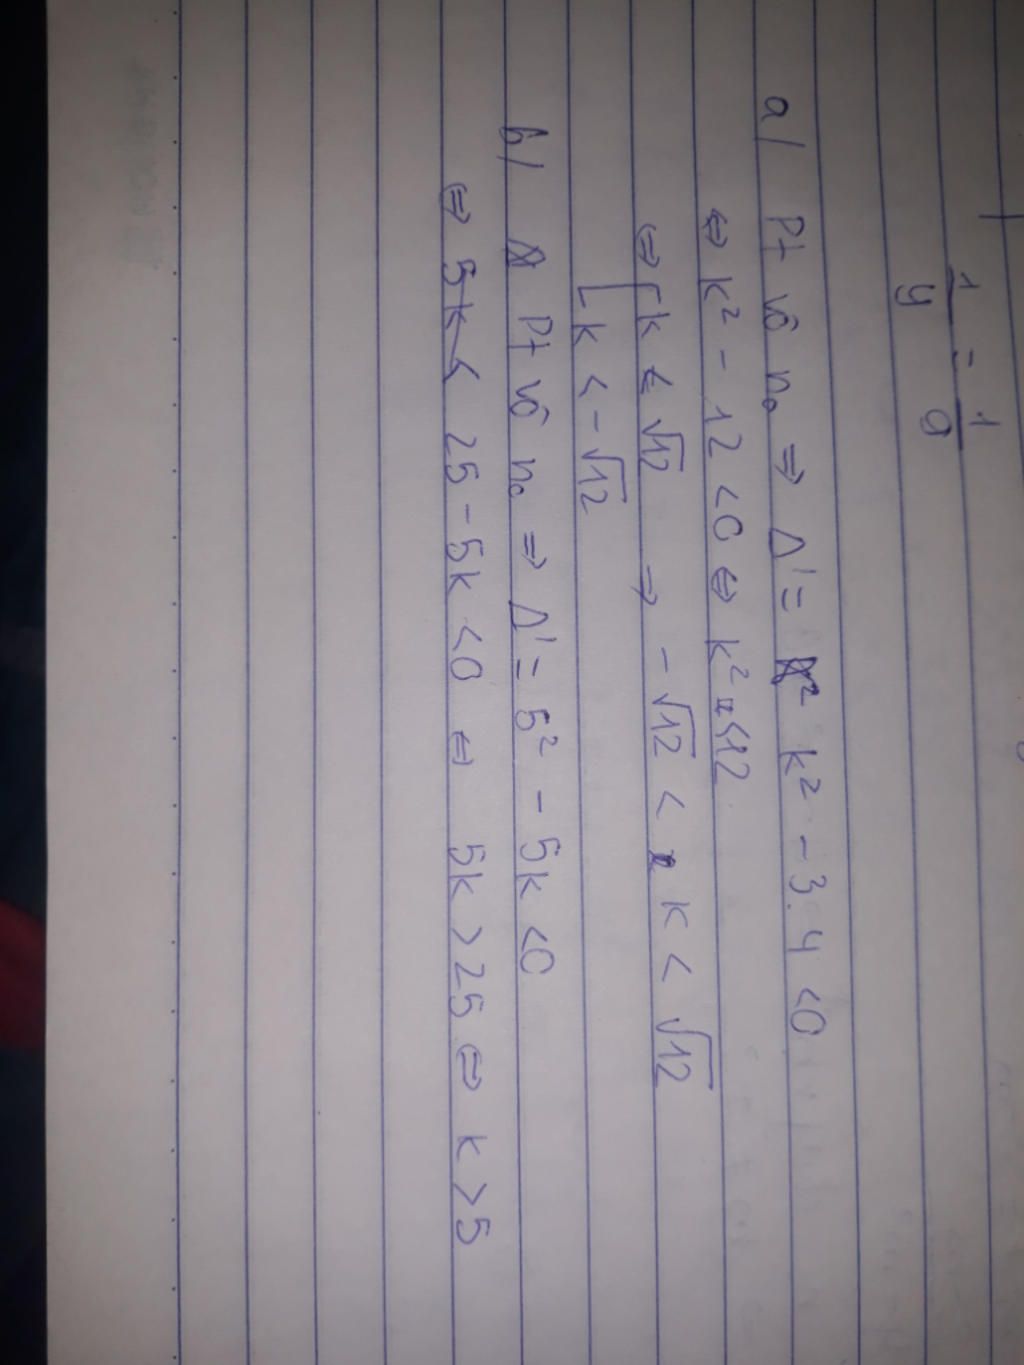 1/y = 1/9
a/ Pt vô n₀ ⇒ Δ' = k² - 3.4 < 0
⇔ k² - 12 < 0 ⇔ k² < 12
⇔ [ k < √12 ⇒ - √12 < k < √12
[ k < - √12
b/ Pt vô n₀ ⇒ Δ' = 5² - 5k < 0
⇔ 25 - 5k < 0 ⇔ 5k > 25 ⇔ k > 5